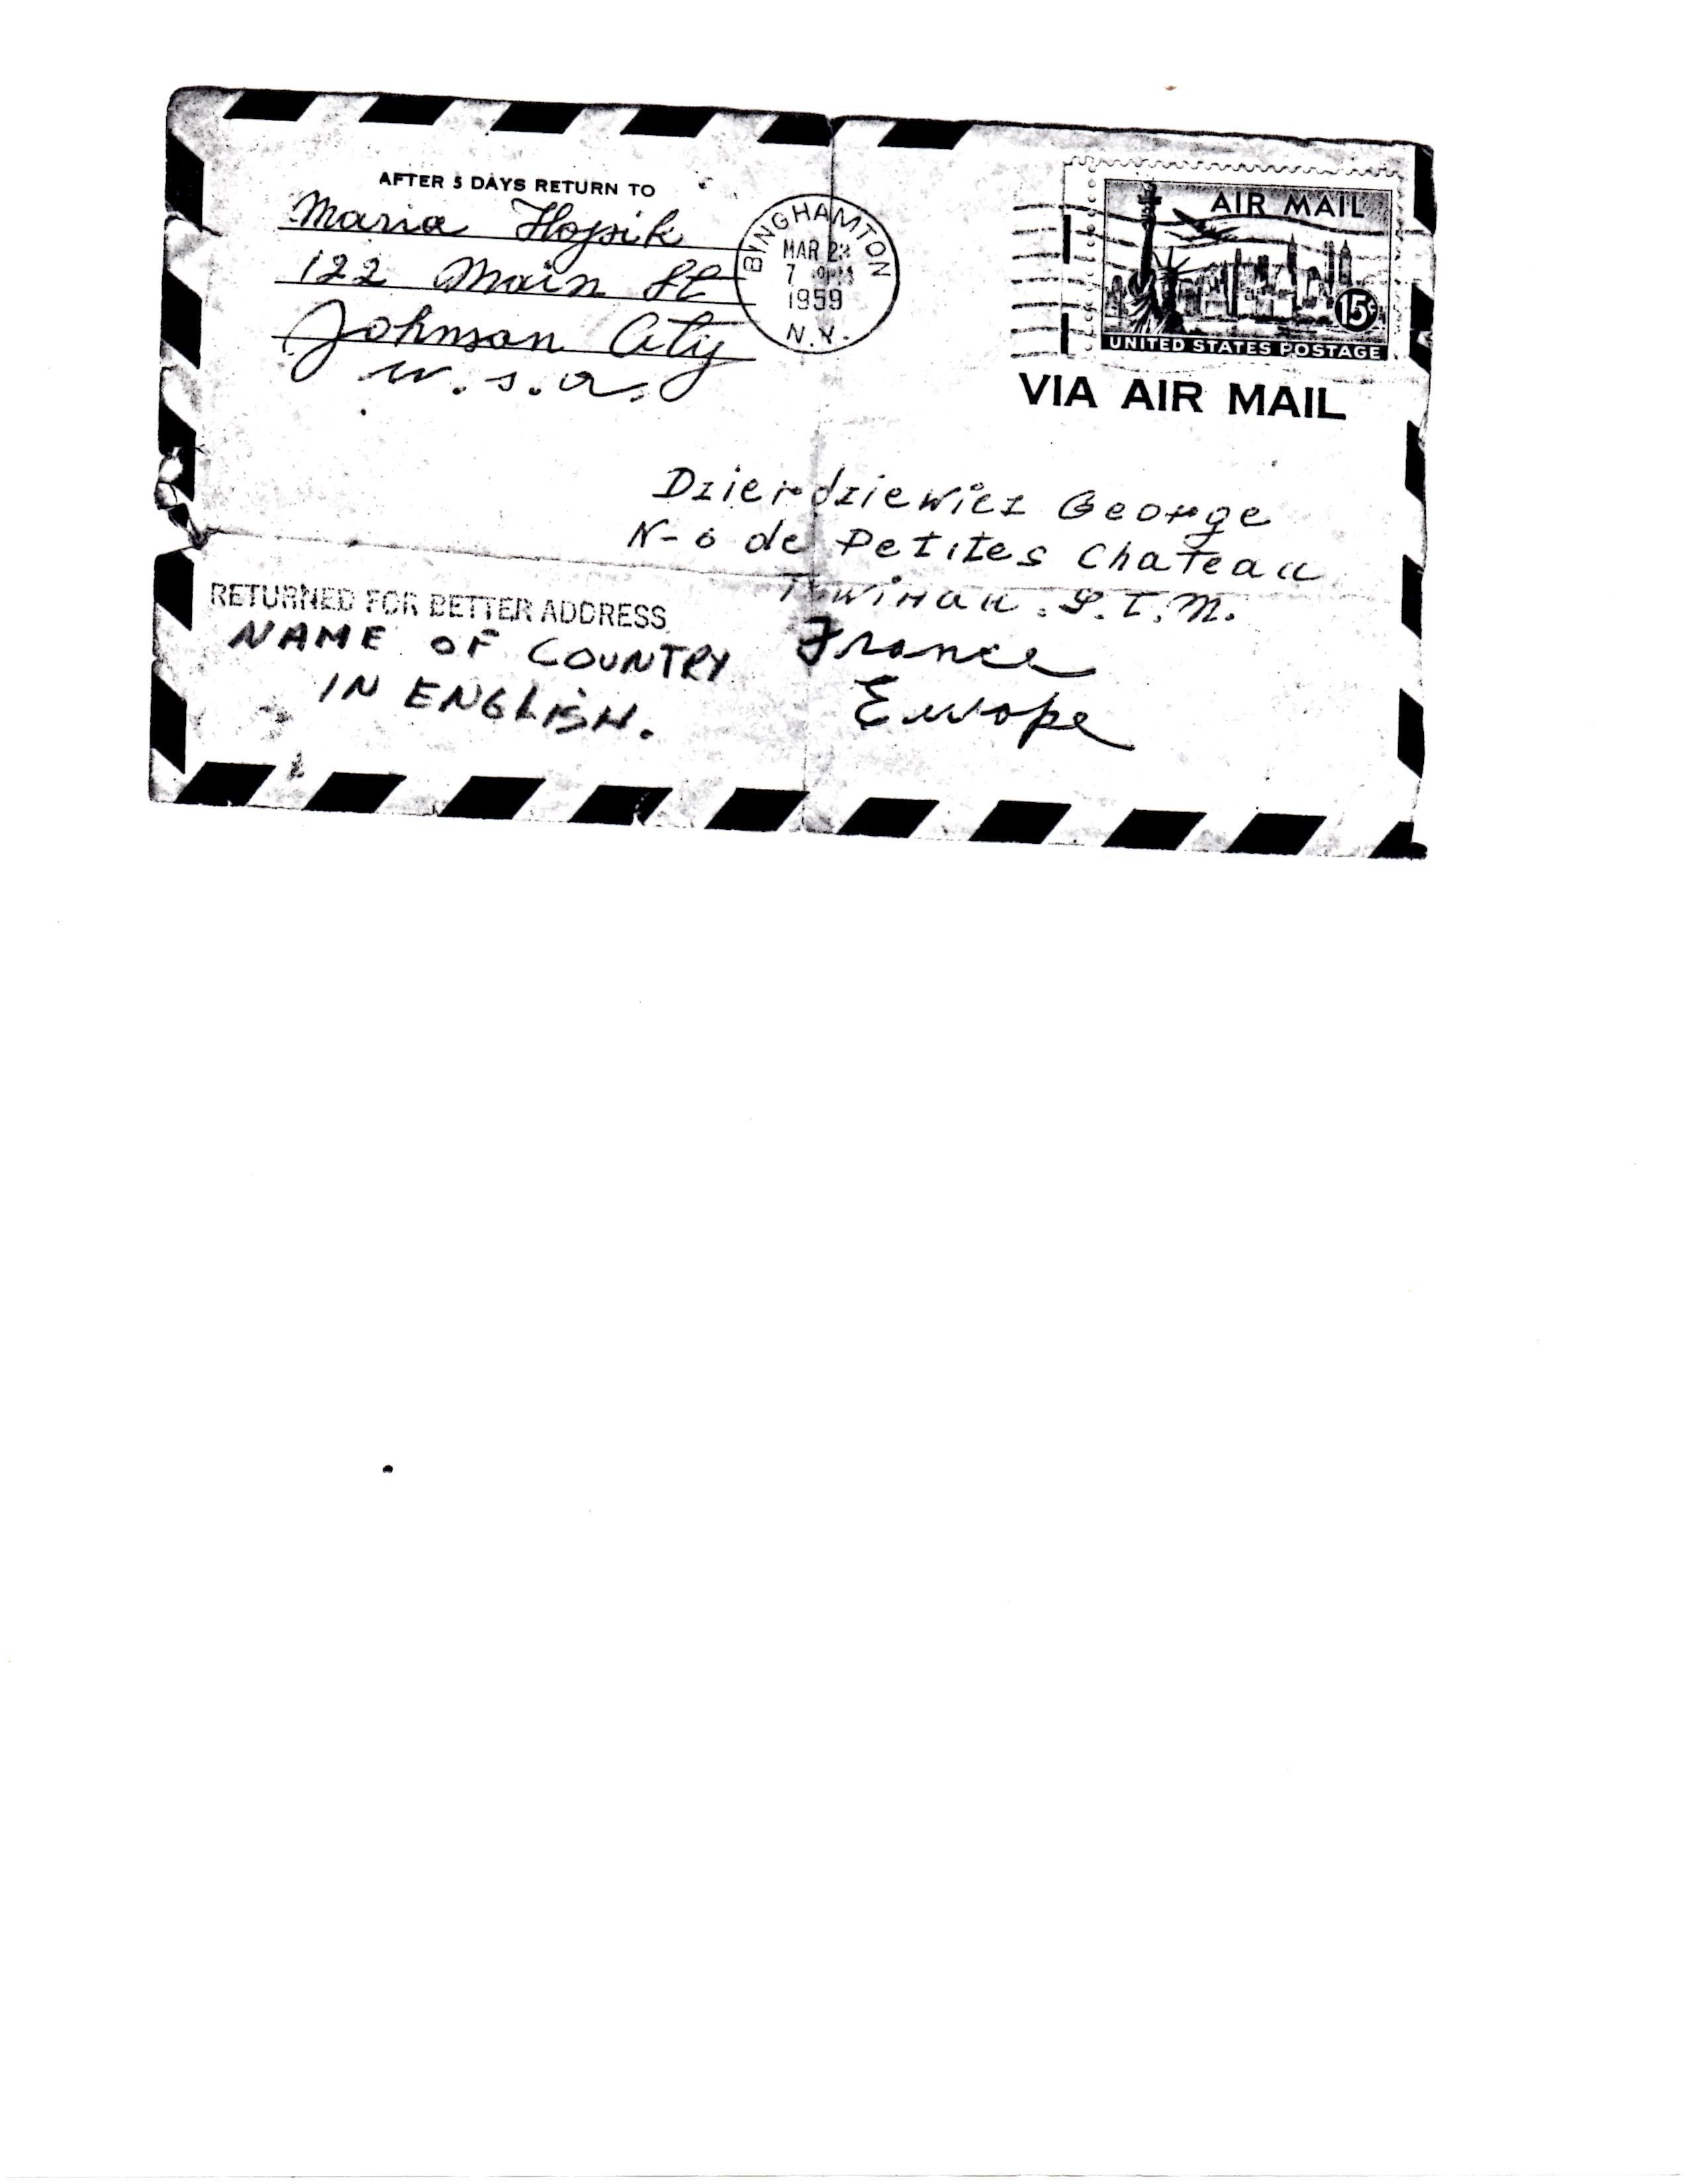 AFTER 5 DAYS RETURN TO
Maria Hojsik
122 Main St
Johnson City
u.s.a.
BINGHAMTON
MAR 23
7 PM
1959
N.Y.
AIR MAIL
15¢
UNITED STATES POSTAGE
VIA AIR MAIL
Dzierdziewicz George
N-6 de Petites Chateau
S.T.M.
France
Europe
RETURNED FOR BETTER ADDRESS
NAME OF COUNTRY
IN ENGLISH.